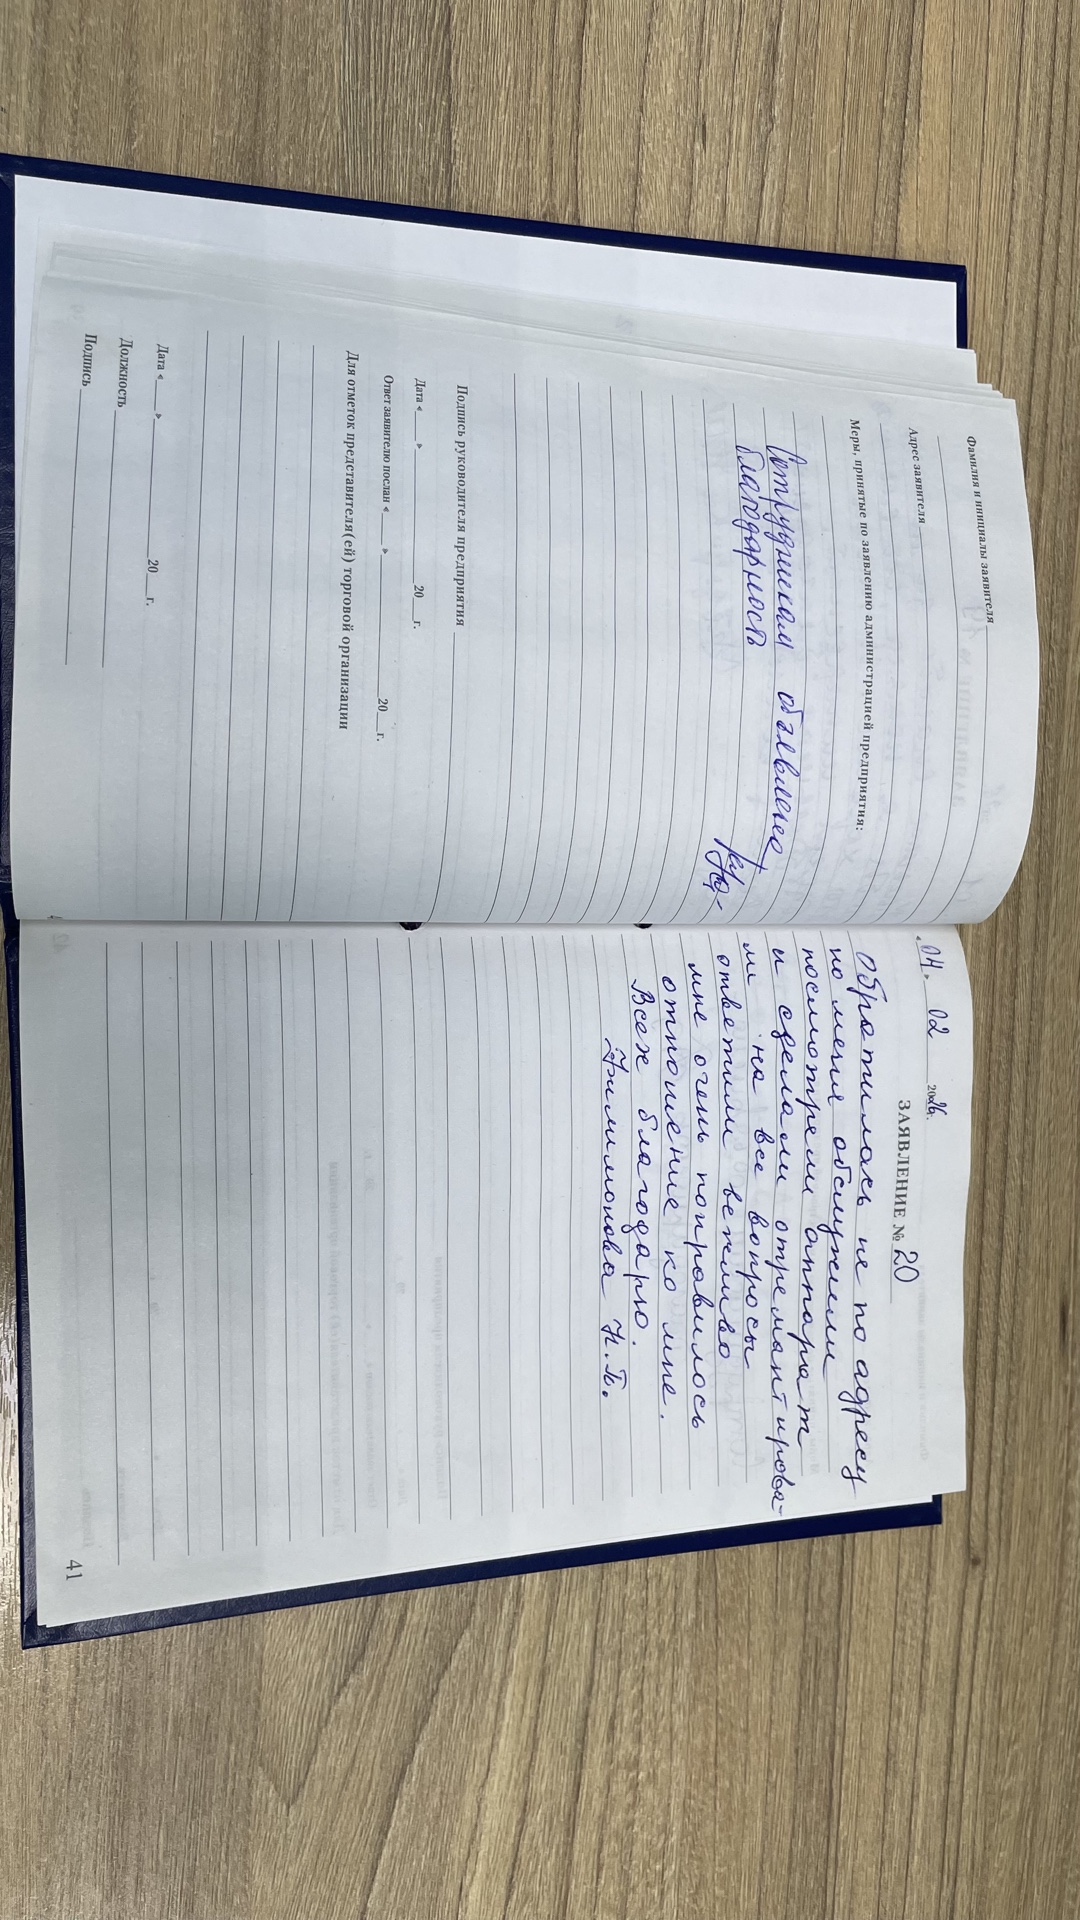 Фамилия и инициалы заявителя
Адрес заявителя
Меры, принятые по заявлению администрацией предприятия:
Сотрудникам объявлено
благодарность
Подпись руководителя предприятия
Дата « » 20 г.
Ответ заявителю послан « » 20 г.
Для отметок представителя(ей) торговой организации
Дата « » 20 г.
Должность
Подпись
« 04 » 02 2026г.
ЗАЯВЛЕНИЕ № 20
Обратилась не по адресу
но меня обслужили
посмотрели аппарат
и сделали отремантирова-
ли на все вопросы
ответили вежливо
мне очень понравилось
отношение ко мне.
Всех благодарю.
Филимонова Н.П.
41